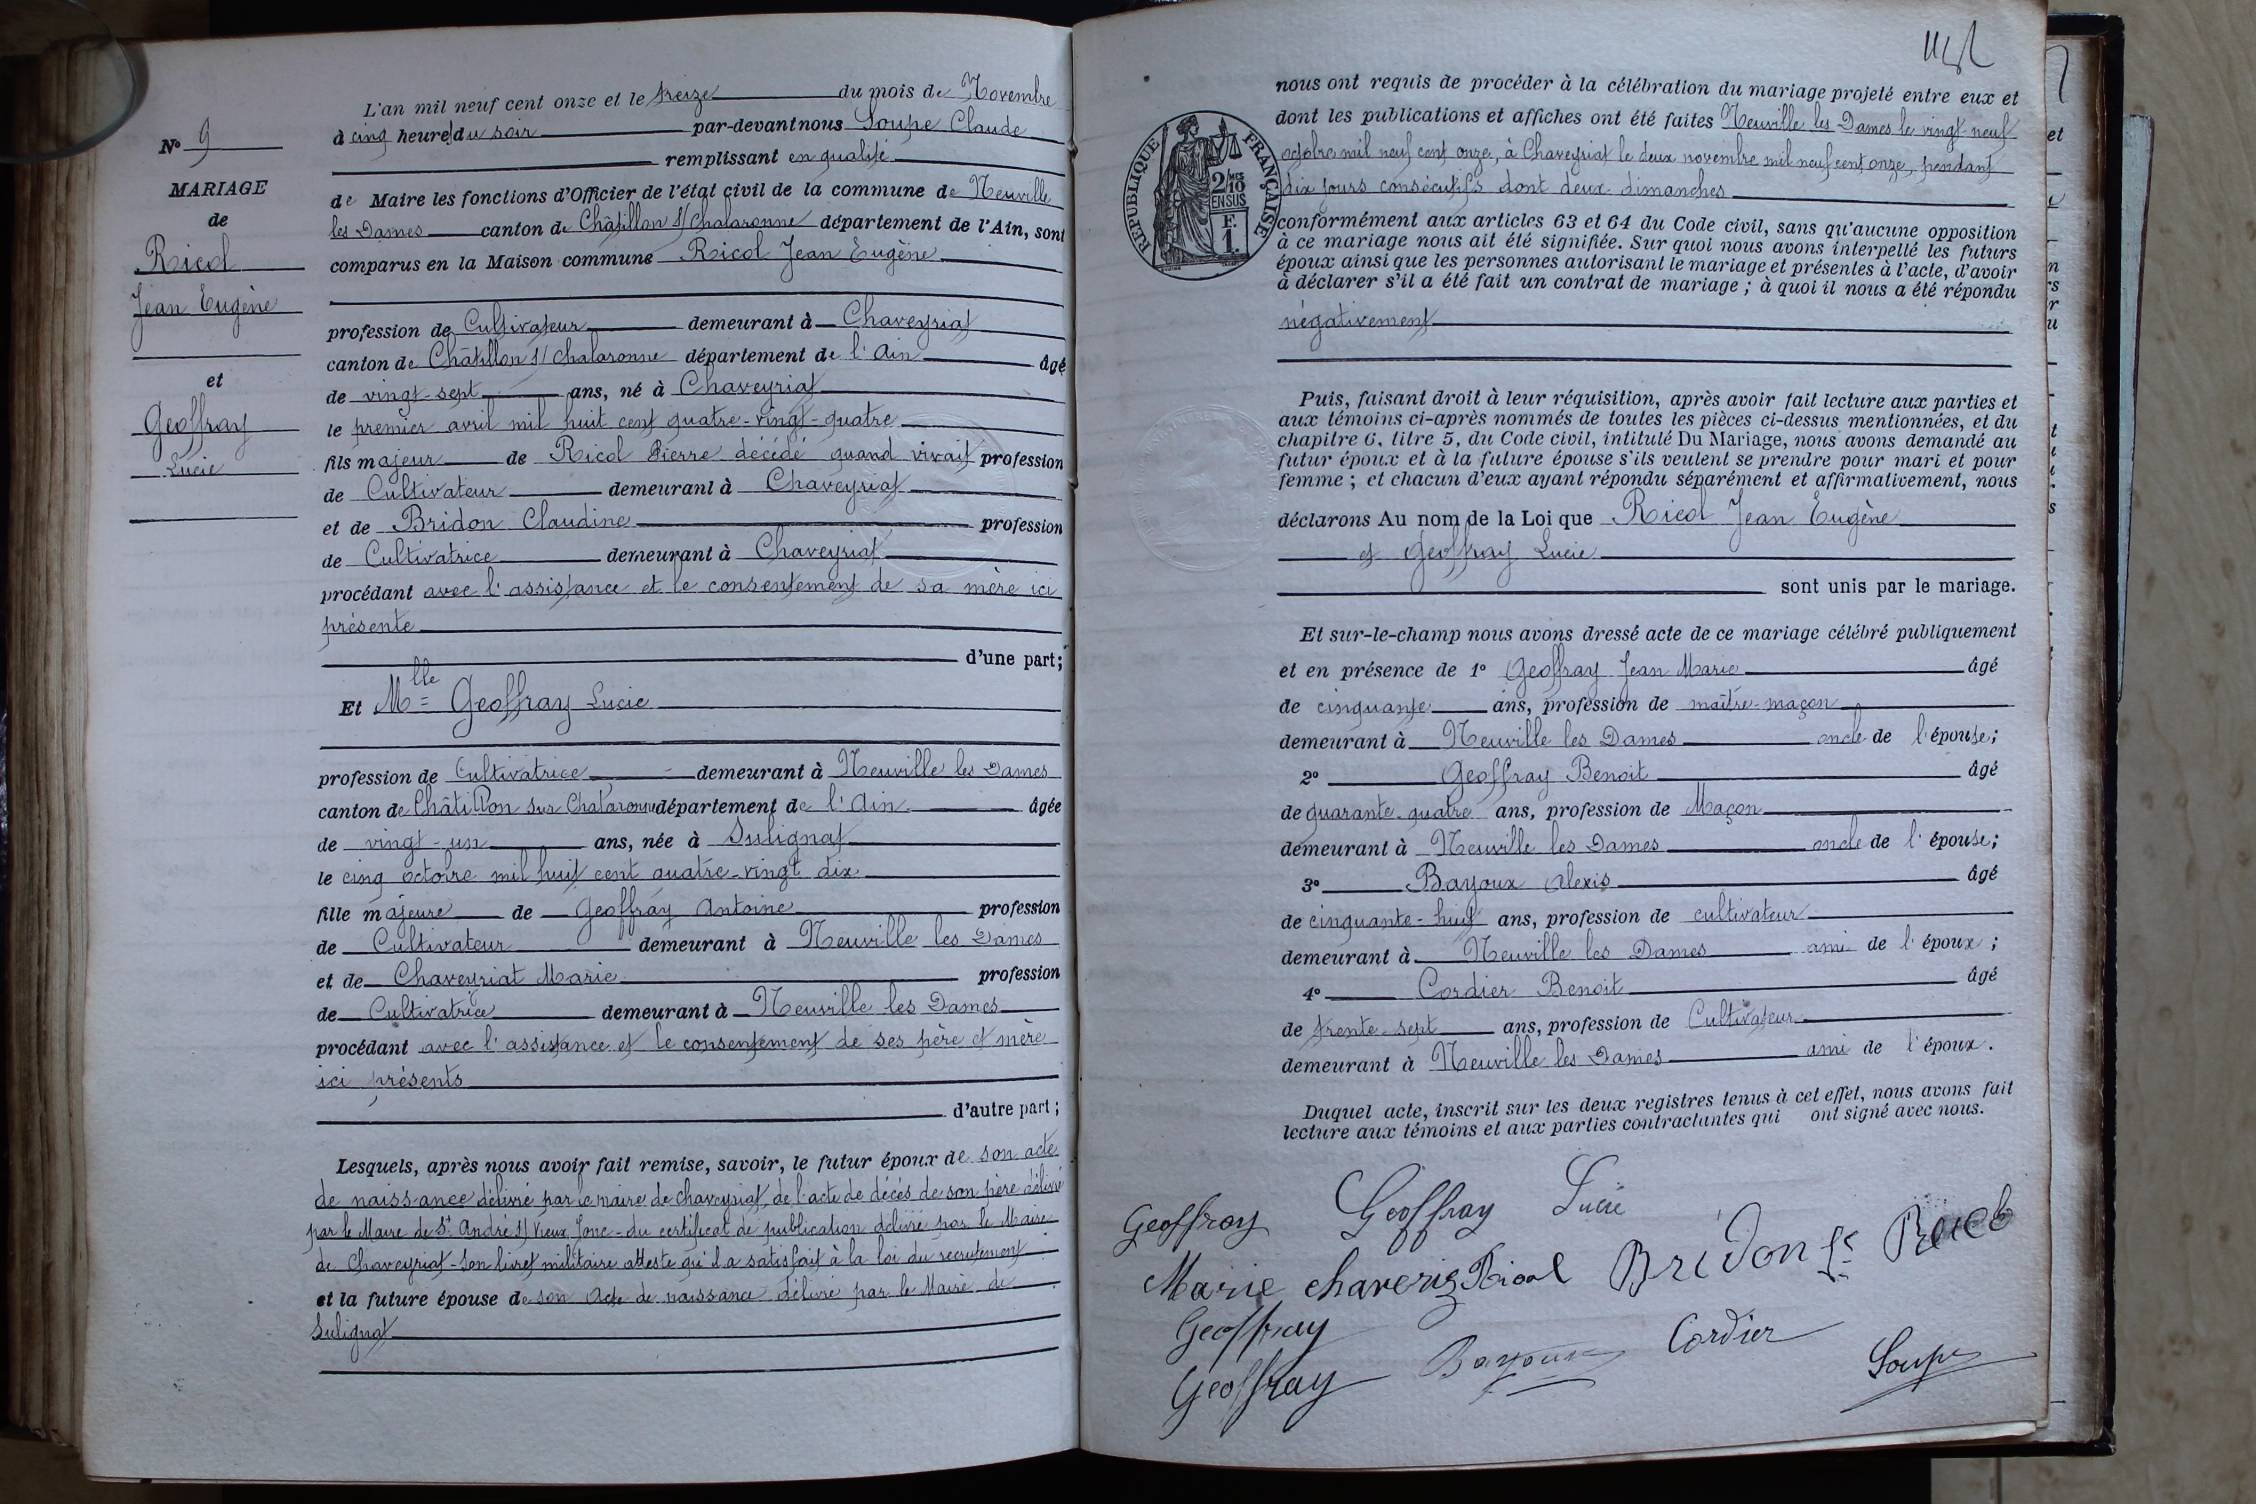 N° 9
MARIAGE
de
Ricol
Jean Eugène
et
Geoffray
Lucie
L'an mil neuf cent onze et le treize du mois de Novembre
à cinq heures du soir par-devant nous Soupe Claude
remplissant en qualité
de Maire les fonctions d'Officier de l'état civil de la commune de Neuville
les Dames canton de Châtillon s/ Chalaronne département de l'Ain, sont
comparus en la Maison commune Ricol Jean Eugène
profession de Cultivateur demeurant à Chaveyriat
canton de Châtillon s/ Chalaronne département de l'Ain âgé
de vingt-sept ans, né à Chaveyriat
le premier avril mil huit cent quatre-vingt-quatre
fils majeur de Ricol Pierre décédé quand vivait profession
de Cultivateur demeurant à Chaveyriat
et de Bridon Claudine profession
de Cultivatrice demeurant à Chaveyriat
procédant avec l'assistance et le consentement de sa mère ici
présente
d'une part;
Et Mlle Geoffray Lucie
profession de Cultivatrice demeurant à Neuville les Dames
canton de Châtillon sur Chalaronne département de l'Ain âgée
de vingt-un ans, née à Sulignat
le cinq octobre mil huit cent quatre-vingt dix
fille majeure de Geoffray Antoine profession
de Cultivateur demeurant à Neuville les Dames
et de Chaveyriat Marie profession
de Cultivatrice demeurant à Neuville les Dames
procédant avec l'assistance et le consentement de ses père et mère
ici présents
d'autre part;
Lesquels, après nous avoir fait remise, savoir, le futur époux de son acte
de naissance délivré par le maire de Chaveyriat, de l'acte de décès de son père délivré
par le Maire de St André s/ Vieux Jonc - du certificat de publication délivré par le Maire
de Chaveyriat - Son livret militaire atteste qu'il a satisfait à la loi du recrutement
et la future épouse de son acte de naissance délivré par le Maire de
Sulignat
nous ont requis de procéder à la célébration du mariage projeté entre eux et
dont les publications et affiches ont été faites Neuville les Dames le vingt neuf
octobre mil neuf cent onze, à Chaveyriat le deux novembre mil neuf cent onze, pendant
dix jours consécutifs dont deux dimanches
RÉPUBLIQUE FRANÇAISE
2/10 MES
EN SUS
F.
1.
conformément aux articles 63 et 64 du Code civil, sans qu'aucune opposition
à ce mariage nous ait été signifiée. Sur quoi nous avons interpellé les futurs
époux ainsi que les personnes autorisant le mariage et présentes à l'acte, d'avoir
à déclarer s'il a été fait un contrat de mariage ; à quoi il nous a été répondu
négativement
Puis, faisant droit à leur réquisition, après avoir fait lecture aux parties et
aux témoins ci-après nommés de toutes les pièces ci-dessus mentionnées, et du
chapitre 6, titre 5, du Code civil, intitulé Du Mariage, nous avons demandé au
futur époux et à la future épouse s'ils veulent se prendre pour mari et pour
femme ; et chacun d'eux ayant répondu séparément et affirmativement, nous
déclarons Au nom de la Loi que Ricol Jean Eugène
et Geoffray Lucie
sont unis par le mariage.
Et sur-le-champ nous avons dressé acte de ce mariage célébré publiquement
et en présence de 1° Geoffray Jean Marie âgé
de cinquante ans, profession de maître-maçon
demeurant à Neuville les Dames oncle de l'épouse;
2° Geoffray Benoit âgé
de quarante-quatre ans, profession de Maçon
demeurant à Neuville les Dames oncle de l'épouse;
3° Bayoux Alexis âgé
de cinquante-huit ans, profession de cultivateur
demeurant à Neuville les Dames ami de l'époux ;
4° Cordier Benoit âgé
de trente-sept ans, profession de Cultivateur
demeurant à Neuville les Dames ami de l'époux.
Duquel acte, inscrit sur les deux registres tenus à cet effet, nous avons fait
lecture aux témoins et aux parties contractantes qui ont signé avec nous.
Geoffroy Geoffray Lucie
Marie Ricol Bridon
Geoffray
Geoffray Bayoux Cordier Soupe